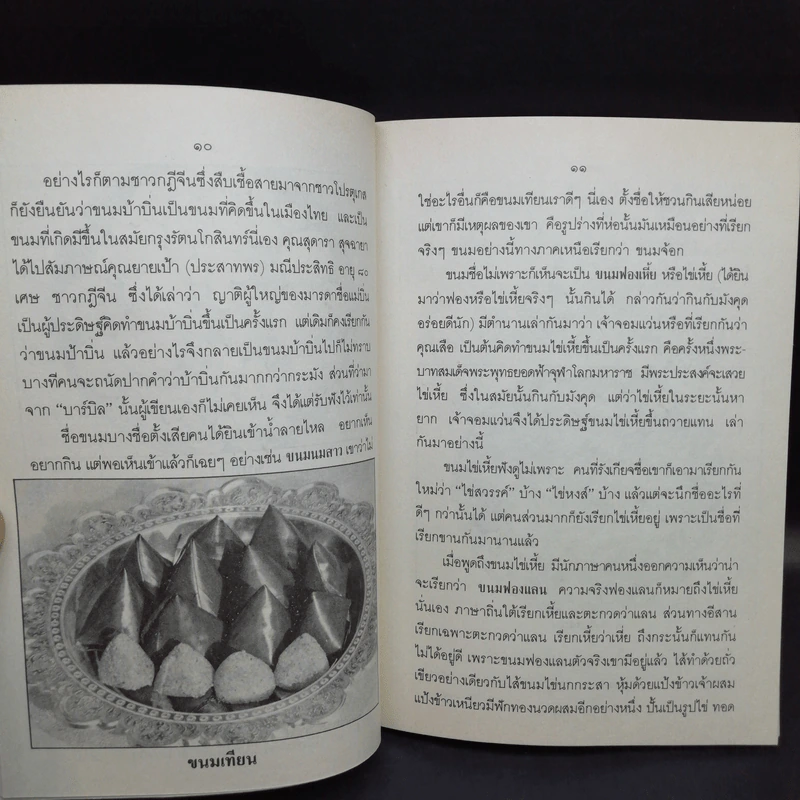 ๑๐
อย่างไรก็ตามชาวกฎีจีนซึ่งสืบเชื้อสายมาจากชาวโปรตุเกส
ก็ยังยืนยันว่าขนมบ้าบิ่นเป็นขนมที่คิดขึ้นในเมืองไทย และเป็น
ขนมที่เกิดมีขึ้นในสมัยกรุงรัตนโกสินทร์นี่เอง คุณสุดารา สุจฉายา
ได้ไปสัมภาษณ์คุณยายเป้า (ประสาทพร) มณีประสิทธิ อายุ ๘๐
เศษ ชาวกฎีจีน ซึ่งได้เล่าว่า ญาติผู้ใหญ่ของมารดาชื่อแม่บิน
เป็นผู้ประดิษฐ์คิดทำขนมบ้าบิ่นขึ้นเป็นครั้งแรก แต่เดิมก็คงเรียกกัน
ว่าขนมป้าบิ่น แล้วอย่างไรจึงกลายเป็นขนมบ้าบิ่นไปก็ไม่ทราบ
บางทีคนจะถนัดปากคำว่าบ้าบิ่นกันมากกว่ากระมัง ส่วนที่ว่ามา
จาก “บาร์บิล” นั้นผู้เขียนเองก็ไม่เคยเห็น จึงได้แต่รับฟังไว้เท่านั้น
ชื่อขนมบางชื่อตั้งเสียคนได้ยินเข้าน้ำลายไหล อยากเห็น
อยากกิน แต่พอเห็นเข้าแล้วก็เฉยๆ อย่างเช่น ขนมนมสาว เขาว่าไม่
ขนมเทียน
๑๑
ใช่อะไรอื่นก็คือขนมเทียนเราดีๆ นี่เอง ตั้งชื่อให้ชวนกินเสียหน่อย
แต่เขาก็มีเหตุผลของเขา คือรูปร่างที่ห่อนั้นมันเหมือนอย่างที่เรียก
จริงๆ ขนมอย่างนี้ทางภาคเหนือเรียกว่า ขนมจ็อก
ขนมชื่อไม่เพราะก็เห็นจะเป็น ขนมฟองเหี้ย หรือไข่เหี้ย (ได้ยิน
มาว่าฟองหรือไข่เหี้ยจริงๆ นั้นกินได้ กล่าวกันว่ากินกับมังคุด
อร่อยดีนัก) มีตำนานเล่ากันมาว่า เจ้าจอมแว่นหรือที่เรียกกันว่า
คุณเสือ เป็นต้นคิดทำขนมไข่เหี้ยขึ้นเป็นครั้งแรก คือครั้งหนึ่งพระ-
บาทสมเด็จพระพุทธยอดฟ้าจุฬาโลกมหาราช มีพระประสงค์จะเสวย
ไข่เหี้ย ซึ่งในสมัยนั้นกินกับมังคุด แต่ว่าไข่เหี้ยในระยะนั้นหา
ยาก เจ้าจอมแว่นจึงได้ประดิษฐ์ขนมไข่เหี้ยขึ้นถวายแทน เล่า
กันมาอย่างนี้
ขนมไข่เหี้ยฟังดูไม่เพราะ คนที่รังเกียจชื่อเขาก็เอามาเรียกกัน
ใหม่ว่า “ไข่สวรรค์” บ้าง “ไข่หงส์” บ้าง แล้วแต่จะนึกชื่ออะไรที่
ดีๆ กว่านั้นได้ แต่คนส่วนมากก็ยังเรียกไข่เหี้ยอยู่ เพราะเป็นชื่อที่
เรียกขานกันมานานแล้ว
เมื่อพูดถึงขนมไข่เหี้ย มีนักภาษาคนหนึ่งออกความเห็นว่าน่า
จะเรียกว่า ขนมฟองแลน ความจริงฟองแลนก็หมายถึงไข่เหี้ย
นั่นเอง ภาษาถิ่นใต้เรียกเหี้ยและตะกวดว่าแลน ส่วนทางอีสาน
เรียกเฉพาะตะกวดว่าแลน เรียกเหี้ยว่าเหี่ย ถึงกระนั้นก็แทนกัน
ไม่ได้อยู่ดี เพราะขนมฟองแลนตัวจริงเขามีอยู่แล้ว ไส้ทำด้วยถั่ว
เขียวอย่างเดียวกับไส้ขนมไข่นกกระสา หุ้มด้วยแป้งข้าวเจ้าผสม
แป้งข้าวเหนียวมีฟักทองนวดผสมอีกอย่างหนึ่ง ปั้นเป็นรูปไข่ ทอด